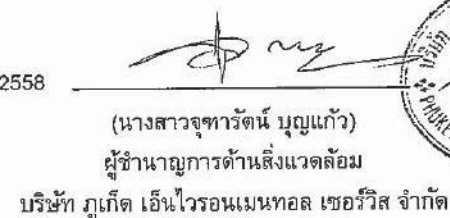 2558
(นางสาวจุฑารัตน์ บุญแก้ว)
ผู้ชำนาญการด้านสิ่งแวดล้อม
บริษัท ภูเก็ต เอ็นไวรอนเมนทอล เซอร์วิส จำกัด
บริษัท
PHUKE